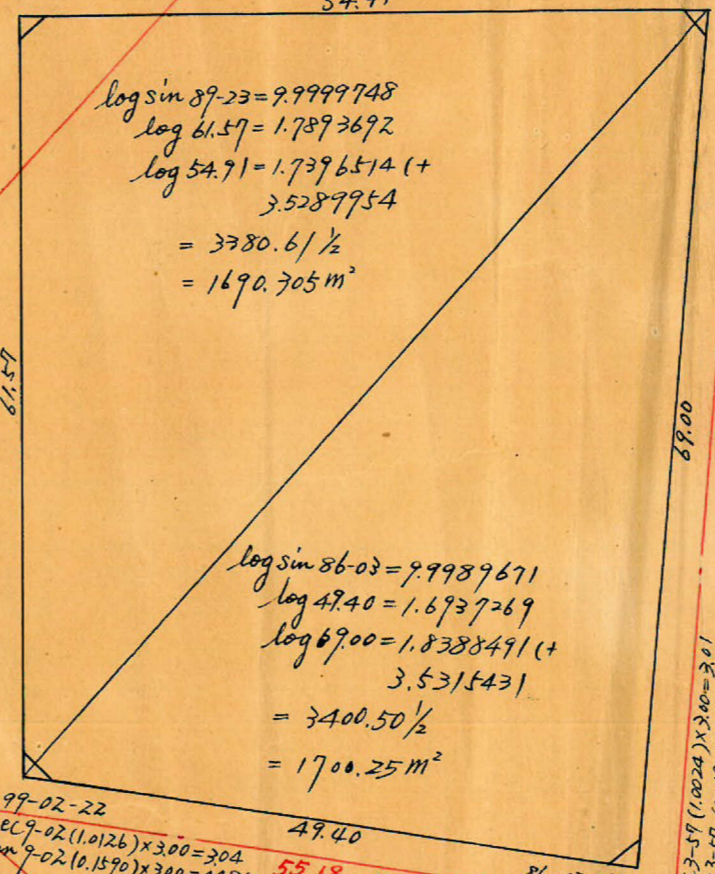 log sin 89-23=9.9999748
log 61.57=1.7893692
log 54.91=1.7396514 (+
3.5289954
= 3380.61 1/2
= 1690.305 m²
61.57
69.00
log sin 86-03=9.9989671
log 49.40=1.6937269
log 69.00=1.8388491 (+
3.5315431
= 3400.50 1/2
= 1700.25 m²
99-02-22
49.40
9-02 (1.0126)×3.00=3.04
9-02 (0.1590)×3.00=
55.18
3-57 (1.0024)×3.00=3.01